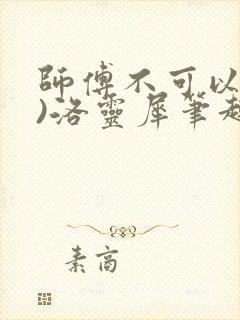 師傅不可以
)洛靈犀筆趣
素高